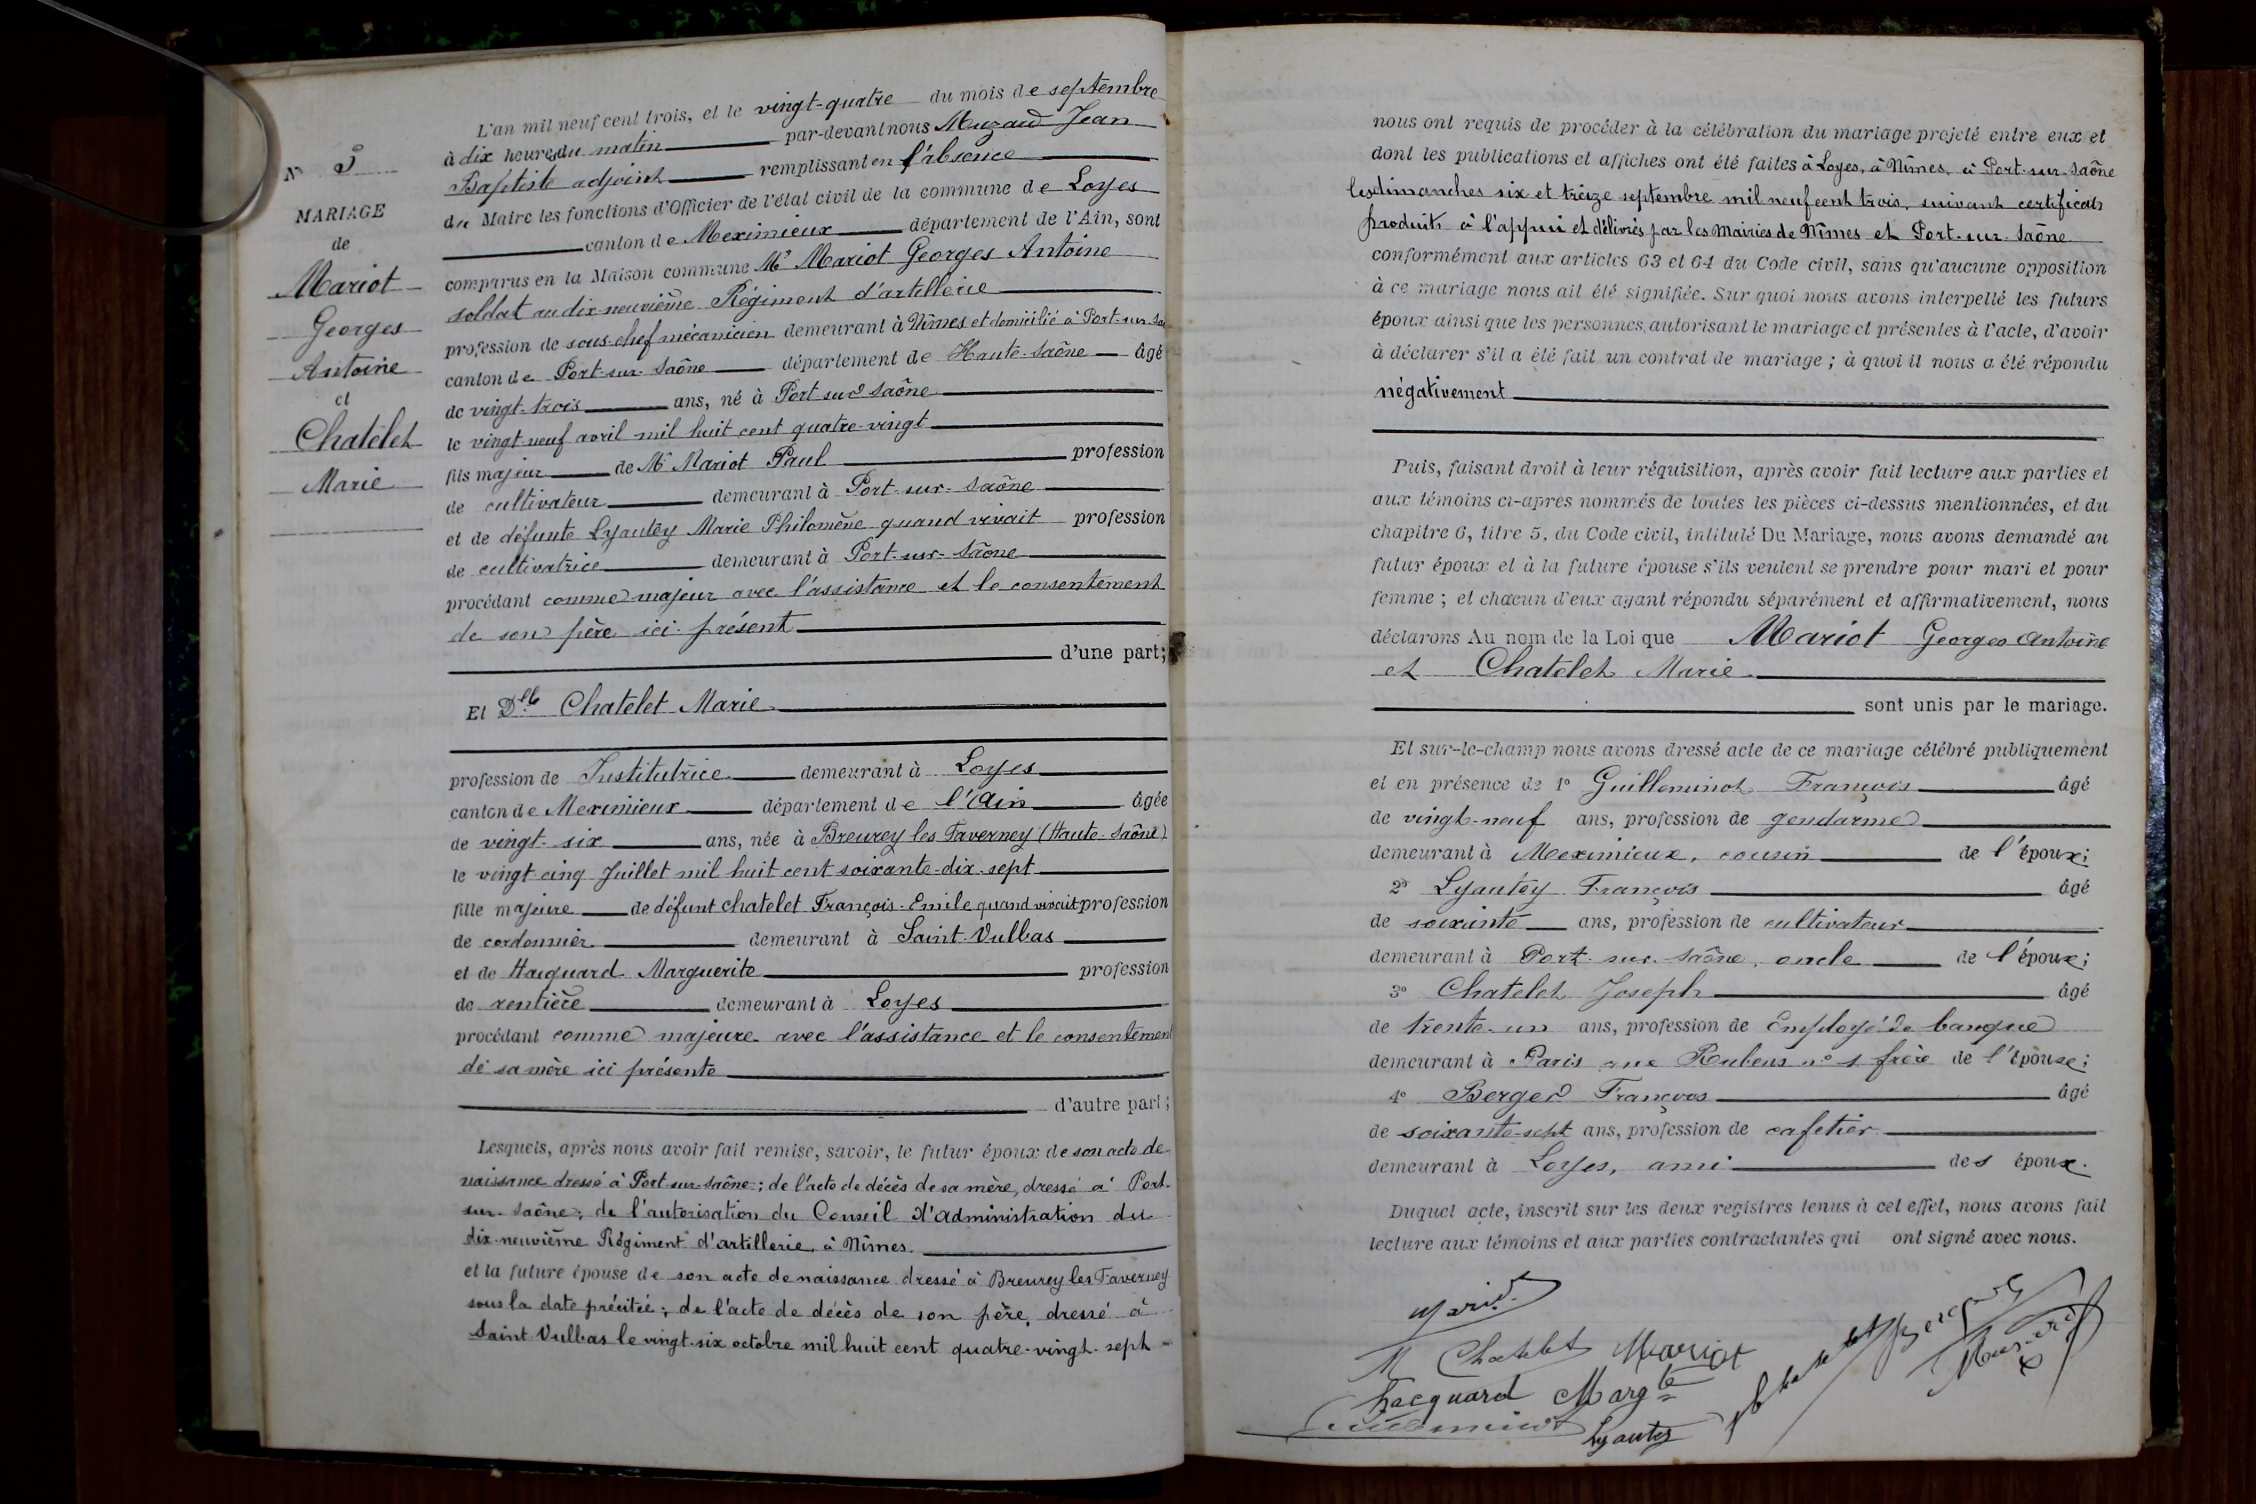 N° 5
MARIAGE
de
Mariot
Georges
Antoine
et
Chatelet
Marie
L'an mil neuf cent trois, et le vingt-quatre du mois de septembre
à dix heures du matin par-devant nous Muzard Jean
Baptiste adjoint remplissant en l'absence
du Maire les fonctions d'Officier de l'état civil de la commune de Loyes
canton de Meximieux département de l'Ain, sont
comparus en la Maison commune Mr Mariot Georges Antoine
soldat au dix-neuvième Régiment d'artillerie
profession de sous-chef mécanicien demeurant à Nîmes et domicilié à Port-sur-Saô
canton de Port-sur-Saône département de Haute-Saône âgé
de vingt-trois ans, né à Port sur Saône
le vingt-neuf avril mil huit cent quatre-vingt
fils majeur de Mr Mariot Paul profession
de cultivateur demeurant à Port-sur-Saône
et de défunte Lyautey Marie Philomène quand vivait profession
de cultivatrice demeurant à Port-sur-Saône
procédant comme majeur avec l'assistance et le consentement
de son père ici présent
d'une part;
Et Dlle Chatelet Marie
profession de Institutrice demeurant à Loyes
canton de Meximieux département de l'Ain âgée
de vingt-six ans, née à Breurey les Faverney (Haute-Saône)
le vingt cinq Juillet mil huit cent soixante-dix-sept
fille majeure de défunt chatelet François-Emile quand vivait profession
de cordonnier demeurant à Saint-Vulbas
et de Hacquard Marguerite profession
de rentière demeurant à Loyes
procédant comme majeure avec l'assistance et le consentement
de sa mère ici présente
d'autre part;
Lesquels, après nous avoir fait remise, savoir, le futur époux de son acte de
naissance dressé à Port-sur-Saône; de l'acte de décès de sa mère, dressé à Port-
sur-Saône; de l'autorisation du Conseil d'administration du
dix-neuvième Régiment d'artillerie, à Nîmes.
et la future épouse de son acte de naissance dressé à Breurey les Faverney
sous la date précitée; de l'acte de décès de son père, dressé à
Saint Vulbas le vingt-six octobre mil huit cent quatre-vingt-sept
nous ont requis de procéder à la célébration du mariage projeté entre eux et
dont les publications et affiches ont été faites à Loyes, à Nîmes, à Port-sur-Saône
les dimanches six et treize septembre mil neuf cent trois, suivant certificats
produits à l'appui et délivrés par les Mairies de Nîmes et Port-sur-Saône
conformément aux articles 63 et 64 du Code civil, sans qu'aucune opposition
à ce mariage nous ait été signifiée. Sur quoi nous avons interpellé les futurs
époux ainsi que les personnes autorisant le mariage et présentes à l'acte, d'avoir
à déclarer s'il a été fait un contrat de mariage; à quoi il nous a été répondu
négativement
Puis, faisant droit à leur réquisition, après avoir fait lecture aux parties et
aux témoins ci-après nommés de toutes les pièces ci-dessus mentionnées, et du
chapitre 6, titre 5, du Code civil, intitulé Du Mariage, nous avons demandé au
futur époux et à la future épouse s'ils veulent se prendre pour mari et pour
femme; et chacun d'eux ayant répondu séparément et affirmativement, nous
déclarons Au nom de la Loi que Mariot Georges Antoine
et Chatelet Marie
sont unis par le mariage.
Et sur-le-champ nous avons dressé acte de ce mariage célébré publiquement
et en présence de 1° Guilleminot François âgé
de vingt-neuf ans, profession de gendarme
demeurant à Meximieux, cousin de l'époux;
2° Lyautey François âgé
de soixante ans, profession de cultivateur
demeurant à Port-sur-Saône, oncle de l'époux;
3° Chatelet Joseph âgé
de trente-un ans, profession de Employé de banque
demeurant à Paris rue Rubens n° 1 frère de l'épouse;
4° Berger François âgé
de soixante-sept ans, profession de cafetier
demeurant à Loyes, ami des époux.
Duquel acte, inscrit sur les deux registres tenus à cet effet, nous avons fait
lecture aux témoins et aux parties contractantes qui ont signé avec nous.
Mariot
M Chatelet Mariot
hacquard Margte
Guilleminot Lyautey